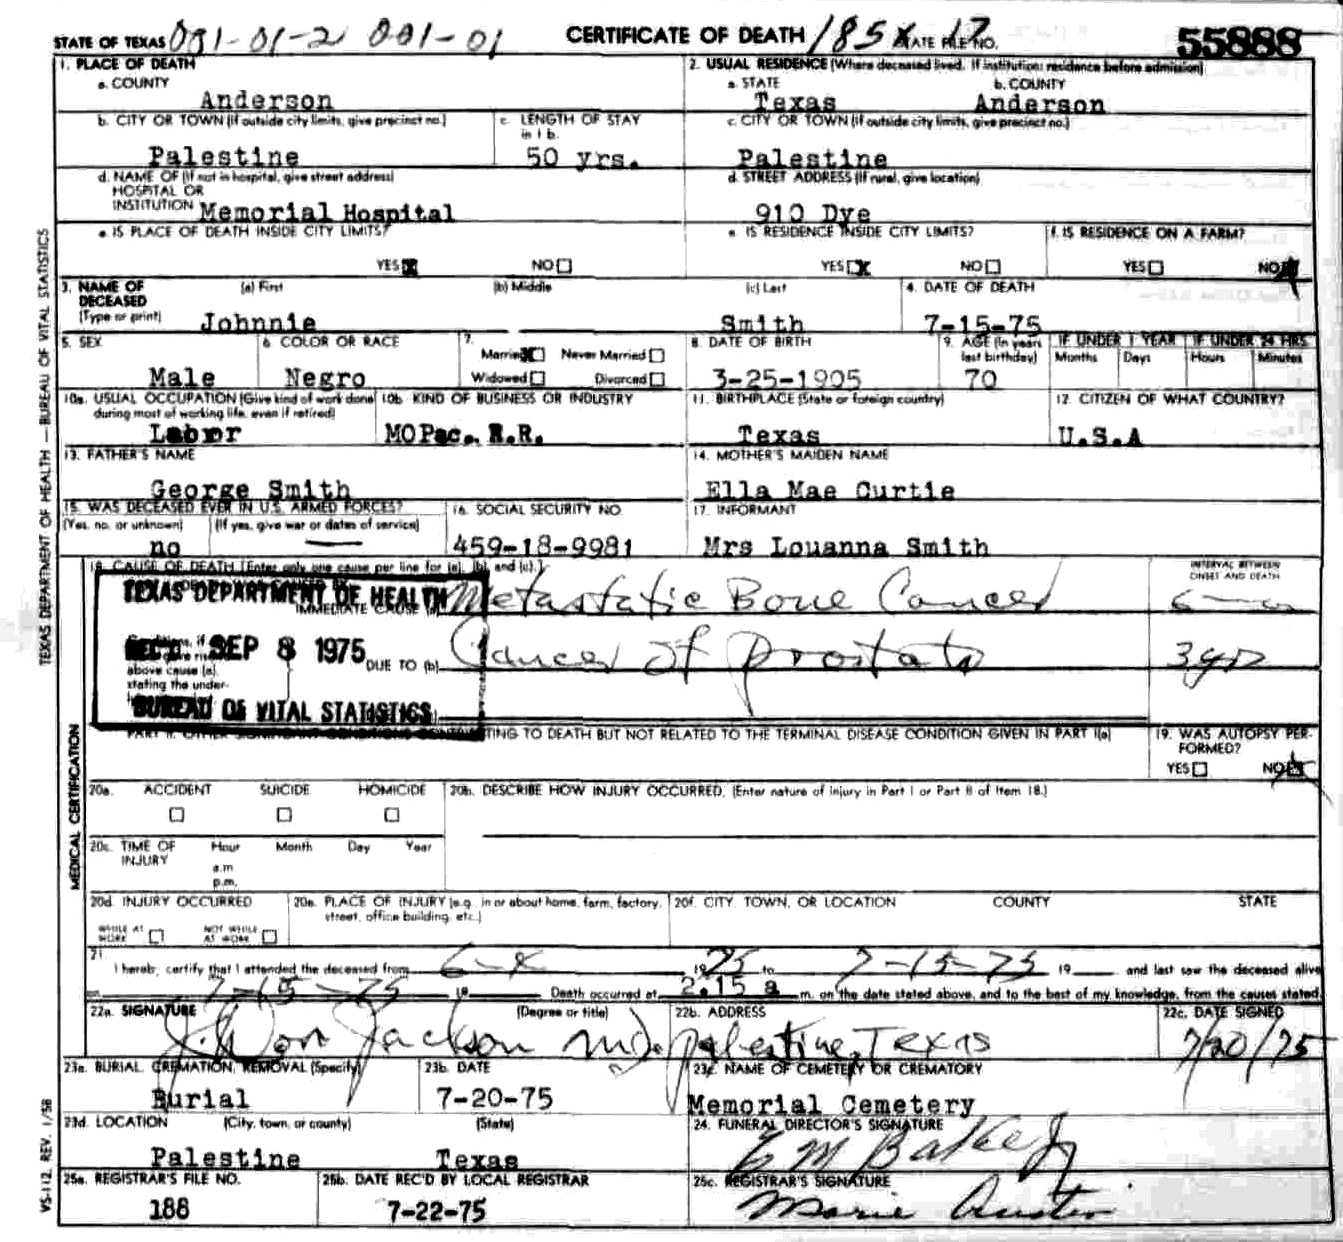 STATE OF TEXAS 001-01-2 001-01 CERTIFICATE OF DEATH 185X 17 STATE FILE NO. 55888
1. PLACE OF DEATH 2. USUAL RESIDENCE (Where deceased lived. If institution: residence before admission)
a. COUNTY a. STATE b. COUNTY
Anderson Texas Anderson
b. CITY OR TOWN (If outside city limits, give precinct no.) c. LENGTH OF STAY in 1 b. c. CITY OR TOWN (If outside city limits, give precinct no.)
Palestine 50 yrs. Palestine
d. NAME OF (If not in hospital, give street address) d. STREET ADDRESS (If rural, give location)
HOSPITAL OR
INSTITUTION Memorial Hospital 910 Dye
e. IS PLACE OF DEATH INSIDE CITY LIMITS? e. IS RESIDENCE INSIDE CITY LIMITS? f. IS RESIDENCE ON A FARM?
YES NO YES NO YES NO
3. NAME OF DECEASED (a) First (b) Middle (c) Last 4. DATE OF DEATH
(Type or print) Johnnie Smith 7-15-75
5. SEX 6. COLOR OR RACE 7. Married Never Married 8. DATE OF BIRTH 9. AGE (In years last birthday) IF UNDER 1 YEAR IF UNDER 24 HRS.
Months Days Hours Minutes
Male Negro Widowed Divorced 3-25-1905 70
10a. USUAL OCCUPATION (Give kind of work done during most of working life, even if retired) 10b. KIND OF BUSINESS OR INDUSTRY 11. BIRTHPLACE (State or foreign country) 12. CITIZEN OF WHAT COUNTRY?
Labor MOPac. R.R. Texas U.S.A
13. FATHER'S NAME 14. MOTHER'S MAIDEN NAME
George Smith Ella Mae Curtie
15. WAS DECEASED EVER IN U.S. ARMED FORCES? 16. SOCIAL SECURITY NO. 17. INFORMANT
(Yes, no, or unknown) (If yes, give war or dates of service)
no 459-18-9981 Mrs Louanna Smith
18. CAUSE OF DEATH [Enter only one cause per line for (a), (b), and (c).] INTERVAL BETWEEN ONSET AND DEATH
TEXAS DEPARTMENT OF HEALTH
IMMEDIATE CAUSE (a) Metastatic Bone Cancer
REC'D. SEP 8 1975
Conditions, if
above cause (a), stating the under-
DUE TO (b) Cancer of prostate 3 yrs
BUREAU OF VITAL STATISTICS
PART II. OTHER SIGNIFICANT CONDITIONS CONTRIBUTING TO DEATH BUT NOT RELATED TO THE TERMINAL DISEASE CONDITION GIVEN IN PART I(a) 19. WAS AUTOPSY PERFORMED?
YES NO
20a. ACCIDENT SUICIDE HOMICIDE 20b. DESCRIBE HOW INJURY OCCURRED. (Enter nature of injury in Part I or Part II of Item 18.)
20c. TIME OF INJURY Hour Month Day Year
a.m.
p.m.
20d. INJURY OCCURRED 20e. PLACE OF INJURY (e.g., in or about home, farm, factory, street, office building, etc.) 20f. CITY, TOWN, OR LOCATION COUNTY STATE
WHILE AT WORK NOT WHILE AT WORK
21. I hereby certify that I attended the deceased from 19 75 to 7-15-75 19 and last saw the deceased alive
on 7-15-75 19 Death occurred at 2.15 a m. on the date stated above, and to the best of my knowledge, from the causes stated.
22a. SIGNATURE (Degree or title) 22b. ADDRESS 22c. DATE SIGNED
Don Jackson MD. Palestine, Texas 7/20/75
23a. BURIAL, CREMATION, REMOVAL (Specify) 23b. DATE 23c. NAME OF CEMETERY OR CREMATORY
Burial 7-20-75 Memorial Cemetery
23d. LOCATION (City, town, or county) (State) 24. FUNERAL DIRECTOR'S SIGNATURE
Palestine Texas E M Bailes Jr
25a. REGISTRAR'S FILE NO. 25b. DATE REC'D BY LOCAL REGISTRAR 25c. REGISTRAR'S SIGNATURE
188 7-22-75 Marie Austin
TEXAS DEPARTMENT OF HEALTH — BUREAU OF VITAL STATISTICS
MEDICAL CERTIFICATION
VS-112 REV. 1/58